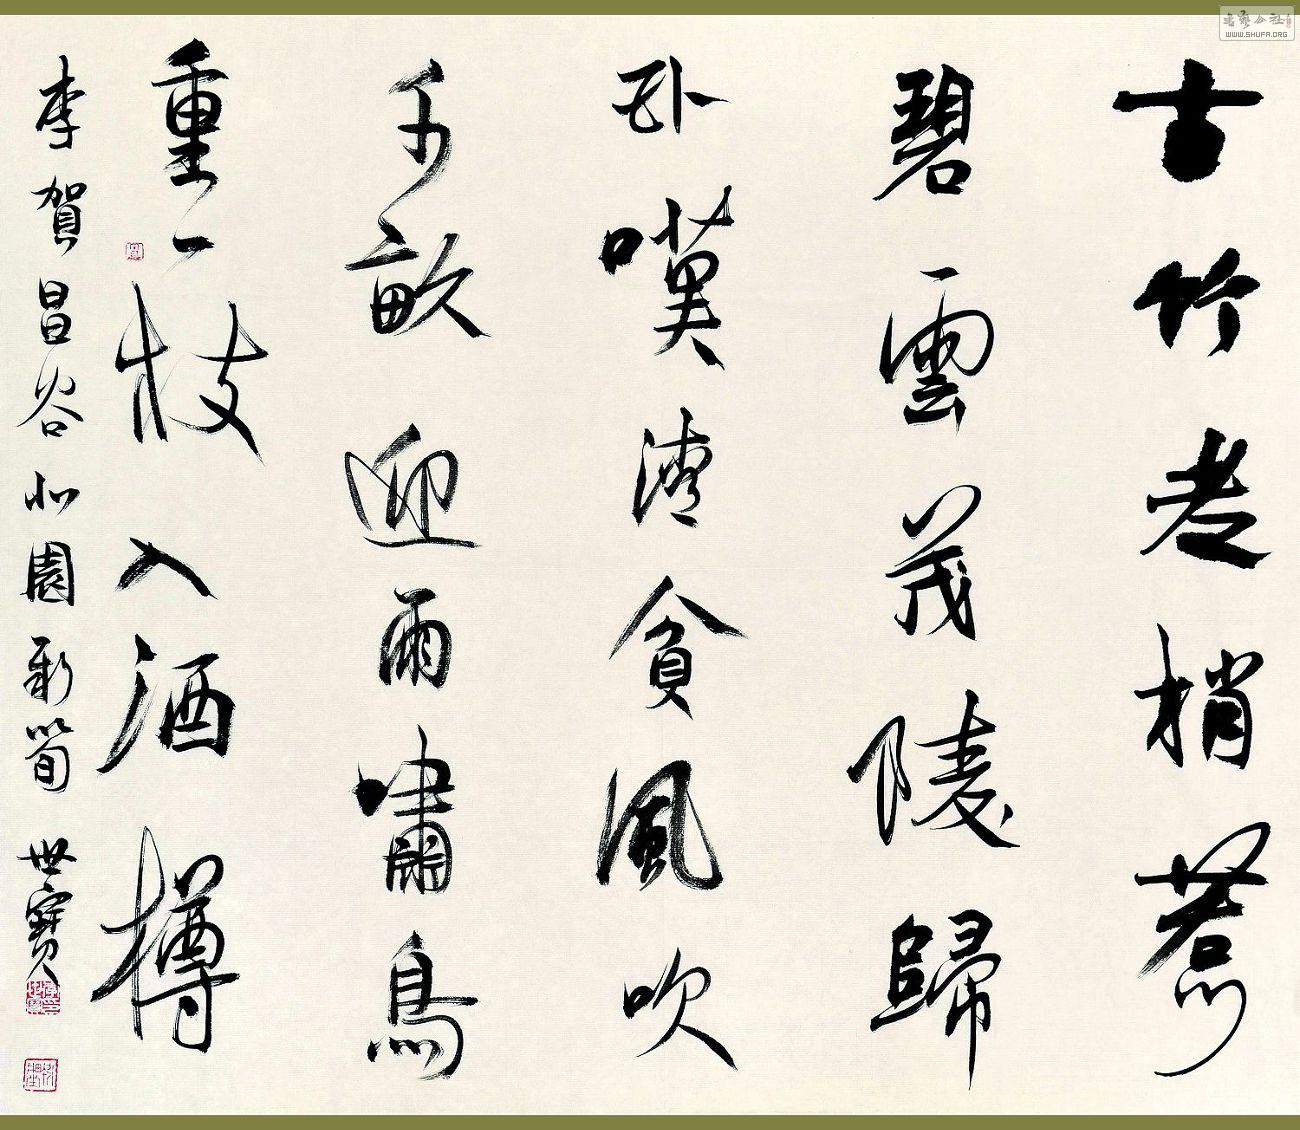 古竹老梢惹
碧雲茂陵歸
卧嘆清貧風吹
千畝迎雨嘯鳥
重一枝入酒樽
李賀昌谷北園新筍 世寶
WWW.SHUFA.ORG